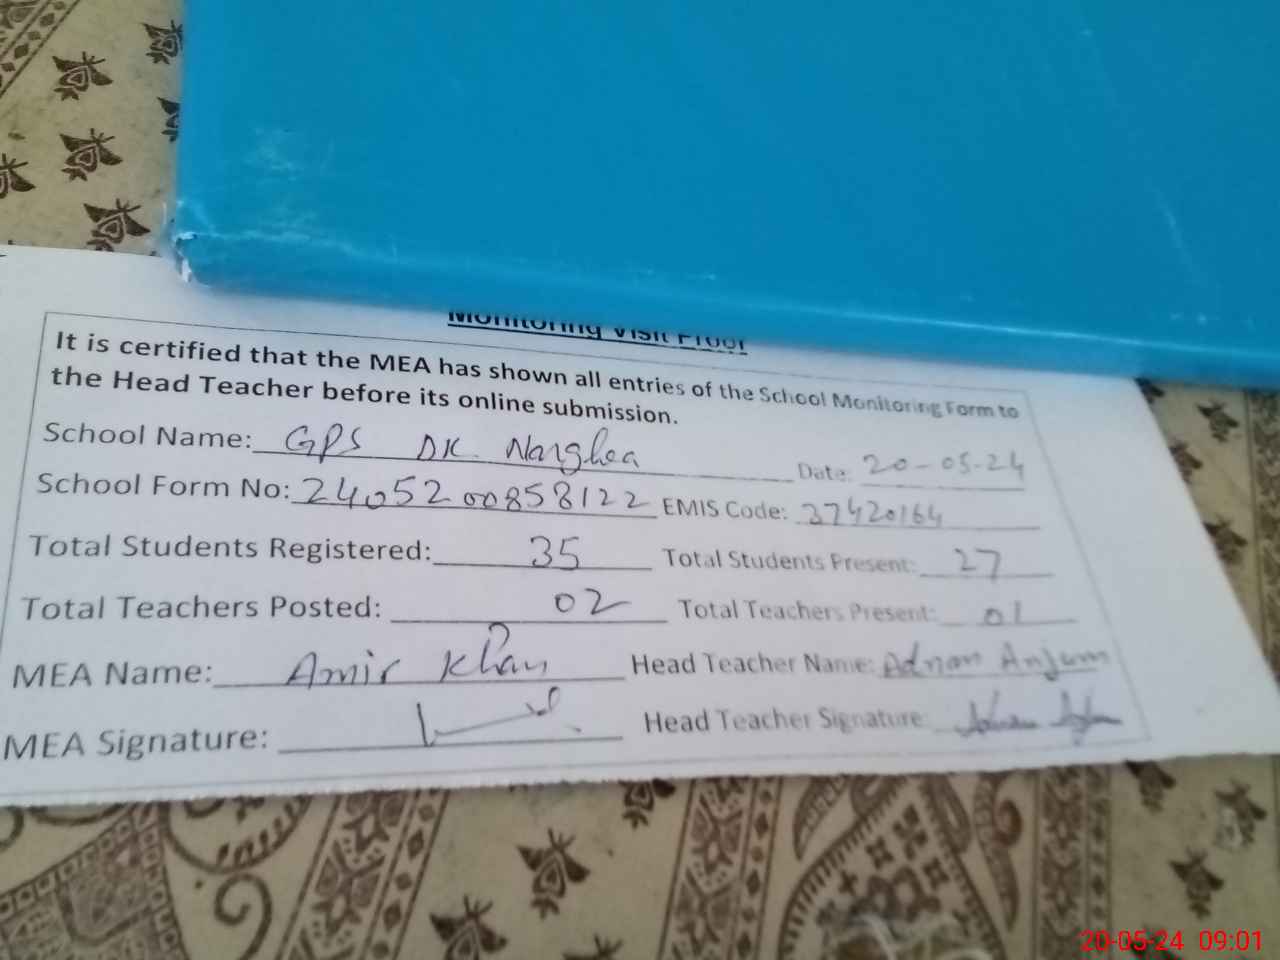 Monitoring Visit Proof
It is certified that the MEA has shown all entries of the School Monitoring Form to
the Head Teacher before its online submission.
School Name: GPS DK. Narghea Date: 20-05-24
School Form No: 2405200858122 EMIS Code: 37420164
Total Students Registered: 35 Total Students Present: 27
Total Teachers Posted: 02 Total Teachers Present: 01
MEA Name: Amir Khan Head Teacher Name: Adnan Anjum
MEA Signature: Head Teacher Signature:
20-05-24 09:01